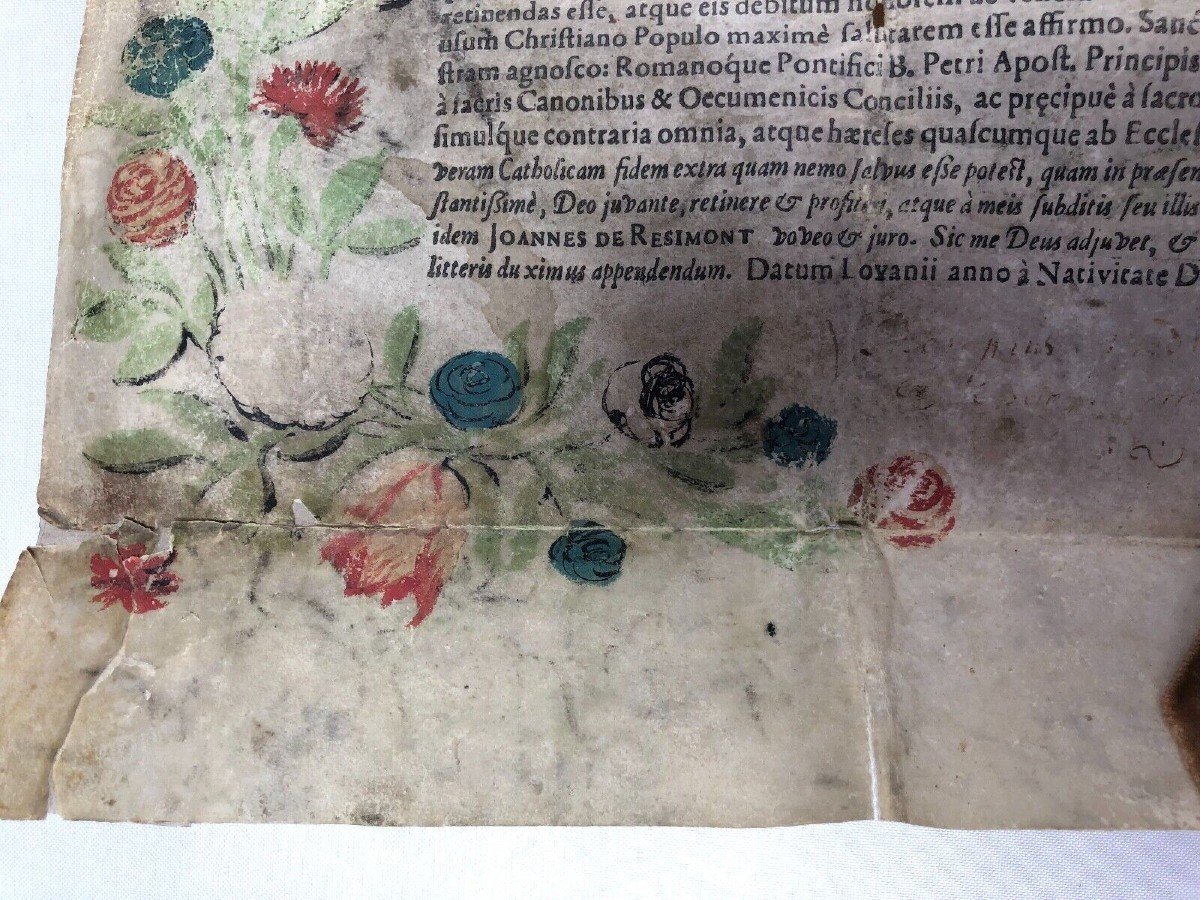 retinendas esse, atque eis debitum
usum Christiano Populo maximè salutarem esse affirmo. Sanc
stram agnosco: Romanoq́ue Pontifici B. Petri Apost. Principis
à sacris Canonibus & Oecumenicis Conciliis, ac pręcipuè à sacro
simulq́ue contraria omnia, atque hæreses quascumque ab Eccles
veram Catholicam fidem extra quam nemo salvus esse potest, quam in præsen
stantissimè, Deo juvante, retinere & profiteri, atque à meis subditis seu illus
idem JOANNES DE RESIMONT voveo & juro. Sic me Deus adjuvet, &
litteris duximus appendendum. Datum Lovanii anno à Nativitate D